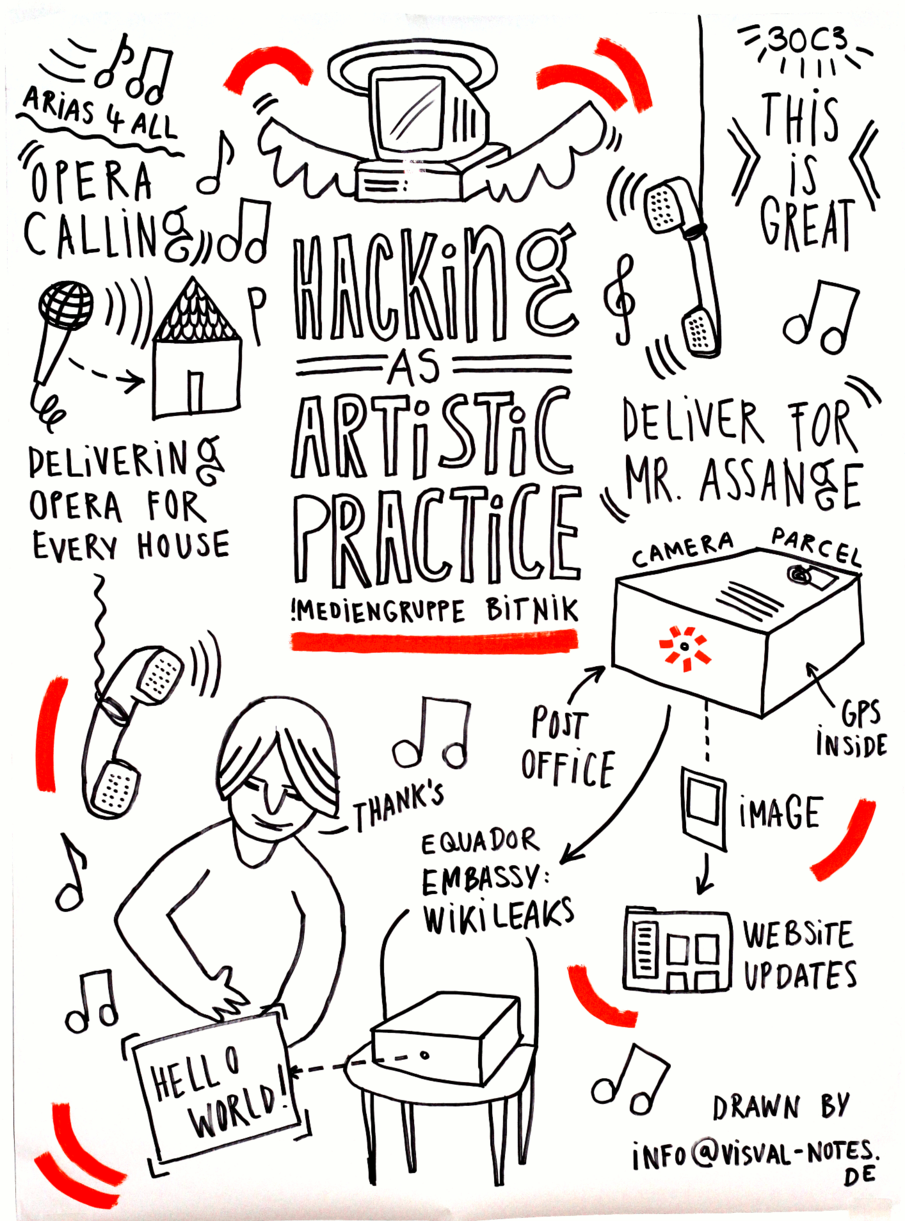 ARiAS 4 ALL
OPERA
CALLiNg
P
DELiVERiNg
OPERA FOR
EVERY HOUSE
HACKiNg
AS
ARTiSTiC
PRACTiCE
!MEDiENGRUPPE BiTNiK
30C3
THiS
iS
GREAT
DELiVER FOR
MR. ASSANgE
CAMERA PARCEL
POST
OFFiCE
GPS
iNSiDE
iMAGE
WEBSiTE
UPDATES
EQUADOR
EMBASSY:
WiKiLEAKS
THANK'S
HELLO
WORLD!
DRAWN BY
iNFO@ViSVAL-NOTES.
DE